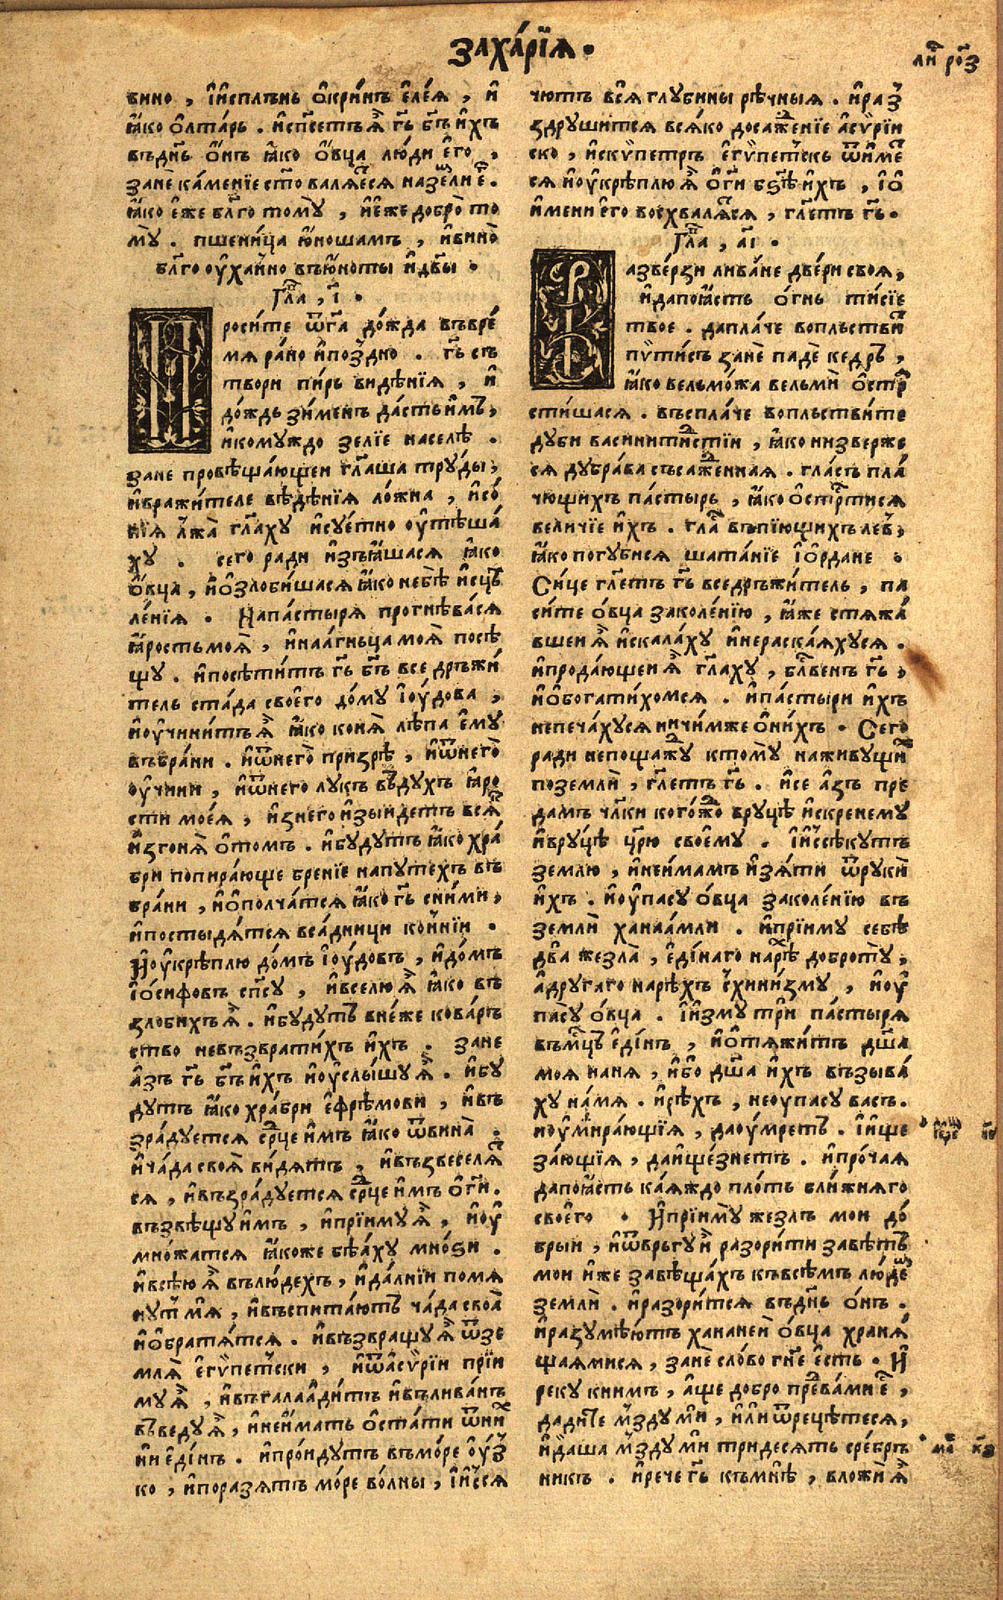 заха́рїѧ.
ли҃ рѯ҃з
вино , и҆и҆сплънь ѻ҆кри́нъ є҆ле́ѧ , и҆
ꙗ҆ко ѻ҆лта́рь . и҆сп҃сетъѧ҆̀ гь҃ бг҃ъ и҆́хъ
въдн҃ь ѻ҆́нъ ꙗ҆́ко ѻ҆́вца лю́ди є҆го̀ ,
занѐ ка́менїе ст҃о валѧ́е́сѧ назе́мли є҆̀.
ꙗ҆ко є҆́же бл҃го томꙋ̀ , и҆є҆́же добро̀ то
мꙋ̀ . пшени́ца ю҆ношамъ , и҆вино̀
бл҃го оу҆ха́нно въю҆ноты и҆дв҃ы .
Гла҃ , і҃ .
Проси́те ѿгд҃а до́жда въвре́
мѧ ра́но и҆по́здно . гь҃ съ
твори пи́рь ви́дѣнїѧ , и҆
до́ждь зи́менъ да́стьи҆мъ̀,
и҆комꙋждо зелїе населѣ .
зане провѣщаю́щеи гла҃ша трꙋды̀,
и҆вражи́теле ви́дѣнїѧ ло́жна , и҆со́
нїѧ лжа̀ гл҃ахꙋ и҆сꙋетно оу҆тѣша́
хꙋ . сего ради и҆зъꙗ҆́шасѧ ꙗ҆ко
ѻ҆́вца , и҆ѻ҆зло́бишасѧ ꙗ҆́ко небѣ̀ и҆сцѣ
ле́нїѧ . Напа́стырѧ прогнѣ́васѧ
ꙗ҆́ростьмоѧ̀ , и҆наа́гньца моѧ̀ посѣ
щꙋ . и҆посѣти́тъ гь҃ бг҃ъ все дръжи́
тель ста́да своє҆го̀ до́мꙋ і҆оу́дова ,
и҆оу҆чини́тъѧ҆̀ ꙗ҆́ко конѧ̀ лѣ́па є҆мꙋ
въбра́ни . и҆ѿнего̀ призрѣ̀ , и҆ѿнего̀
оу҆чи́ни , и҆ѿнего лꙋкъ въдꙋхъ ꙗ҆ро
сти моеѧ̀ , и҆знего и҆зы́идетъ всѧ̀
и҆згонѧ̀ ѻ҆то́мъ . и҆бꙋ́дꙋтъ ꙗ҆́ко хра́
бри попира́юще бренїе напꙋ́техъ въ
бра́ни , и҆ѻ҆полча́тсѧ ꙗ҆́ко гь҃ сни́ми ,
и҆постыдѧ́тсѧ вса́дници ко́ннїи .
И҆оу҆крѣплю̀ до́мъ і҆оу́довъ , и҆до́мъ
і҆ѡ́сифовъ сп҃сꙋ , и҆вселю̀ѧ҆̀ ꙗ҆́ко въ
злобихъѧ҆̀ . и҆бꙋдꙋтъ вне́же кова́ръ
ство невъзврати́хъ и҆́хъ . зане
а҆́зъ гь҃ бг҃ъ и҆́хъ и҆оу҆слы́шꙋѧ҆̀ . и҆бꙋ
дꙋтъ ꙗ҆́ко хра́бри є҆фре́мови , и҆въ
зра́дꙋетсѧ срц҃е и҆мъ ꙗ҆́ко ѿвина̀ .
и҆ча́да своѧ̀ ви́дѧтъ , и҆възвеселѧ̀
сѧ , и҆възра́дꙋетсѧ срц҃е и҆мъ ѻ҆гд҃ѣ.
възвѣщꙋи҆мъ , и҆прїимꙋѧ҆̀ , и҆оу҆
мно́жатсѧ ꙗ҆́коже бѣа́хꙋ мно́ѕи .
и҆всѣ́юѧ҆̀ вълю́дехъ , и҆да́лнїи помѧ
нꙋт мѧ̀ , и҆въспита́ютъ ча́да своѧ̀
и҆ѻ҆братѧ́тсѧ . и҆възвращꙋѧ҆̀ ѿзе
млѧ̀ є҆гѵ́петски , и҆ѿасѵ́рїи прїи
мꙋѧ҆̀ , и҆въгалаа́дитъ и҆въливанъ
въведꙋѧ҆̀ , и҆неи҆́мать ѻ҆ста́ти ѿни́х
ни є҆ди́нъ . и҆про́идꙋтъ въмо́ре оу҆́з
ко , и҆поразѧ́тъ мо́ре во́лны , и҆и҆ссѧ
чютъ всѧ̀ глꙋбины рѣ́чныѧ . и҆раз
здрꙋши́тсѧ всѧ́ко досаже́нїе а҆сѵ́рїи
ско , и҆скѵ́петръ є҆гѵ́петскъ ѿи҆ме
сѧ и҆оу҆крѣплю̀ ѧ҆̀ ѻ҆гд҃ѣ бз҃ѣ и҆́хъ , і҆ѻ҆
и҆мени є҆го восхвалѧ́сѧ , гл҃етъ гь҃.
Гла҃ , а҃і .
Ѿве́рзи лива́не две́ри своѧ̀ ,
и҆дапоꙗ҆́стъ о́гнь ти́сїе
твое . дапла́че вопльстви́
пѵ́тисъ занѐ падѐ кедръ ,
ꙗ҆́ко вельмо́жа вельмѝ ѻ҆стр
сти́шасѧ . въспла́че вопльстви́те
дꙋби васинити́стїи , ꙗ҆́ко низверже
сѧ дꙋбра́ва съсаже́нная . гла́съ пла́
чющихъ па́стырь , ꙗ҆́ко ѻ҆стртисѧ
вели́чїе и҆́хъ . гла́ въпїющихъ левъ,
ꙗ҆́ко погꙋбисѧ шата́нїе і҆ѻ҆рда́не .
Си́це гл҃етъ гь҃ вседръжи́тель , па
си́те ѻ҆́вца заколе́нїю , ꙗ҆́же стѧжа́
вшеи ѧ҆̀ и҆скала́хꙋ и҆нераска́ѧхꙋсѧ .
и҆прода́ющеи ѧ҆̀ гл҃ахꙋ , бл҃венъ гь҃ ,
и҆ѻ҆богати́хомсѧ . и҆па́стыри и҆́хъ
непеча́хꙋсѧ ничи́мже ѻ҆ни́хъ . Сего
ради непощажꙋ̀ ктомꙋ̀ наживꙋщи́
поземлѝ , гл҃етъ гь҃ . и҆се а҆́зъ пре
да́мъ чл҃ки когождо̀ врꙋцѣ̀ и҆скренемꙋ
и҆врꙋцѣ̀ цр҃ю своє҆мꙋ . и҆и҆ссѣкꙋтъ
землю , и҆неи҆мамъ и҆зѧти ѿрꙋкѝ
и҆́хъ . и҆оу҆пасꙋ ѻ҆́вца заколе́нїю въ
землѝ ханаа́мли . и҆прїимꙋ себѣ
два́ жезла̀ , є҆ди́наго нарꙗ҆̀ добротꙋ̀ ,
а҆дрꙋга́го наре́хъ є҆хини́змꙋ , и҆оу҆
па́сꙋ ѻ҆́вца . и҆и҆змꙋ трѝ па́стырѧ
въмц҃ъ є҆ди́нъ , и҆ѻ҆тѧжи́тъ дш҃а
моѧ нанѧ , и҆бо дш҃а и҆́хъ възыва́
хꙋ на́мѧ . и҆рѣ́хъ , неоупасꙋ ва́съ .
и҆оу҆мира́ющїѧ , даоу҆́мретъ . и҆и҆ще
за́ющїѧ , даи҆ще́знетъ . и҆про́чаѧ
дапоꙗ҆́стъ ка́ѧждо пло́ть бли́жнѧго
своє҆го̀ . И҆прїимꙋ̀ же́злъ мои до́
брыи , и҆ѿврьгꙋи҆ разори́ти завѣ́тъ
мои и҆́же завѣща́хъ къвсѣмъ лю́де
землѝ . и҆разори́тсѧ въдн҃ь ѻ҆́нъ .
и҆разꙋмѣ́ютъ хананеѝ ѻ҆́вца хранѧ́
щаѧмисѧ , занѐ сло́во гн҃е є҆́сть . И҆
рекꙋ книмъ , а҆́ще добро пре́двами є҆̀ ,
дади́те мздꙋ мѝ , и҆лѝ ѿреце́тесѧ ,
и҆да́ша мздꙋ мѝ три́десѧть сре́бръ
никъ . и҆рече гь҃ къмнѣ̀ , вложѝ ѧ҆̀